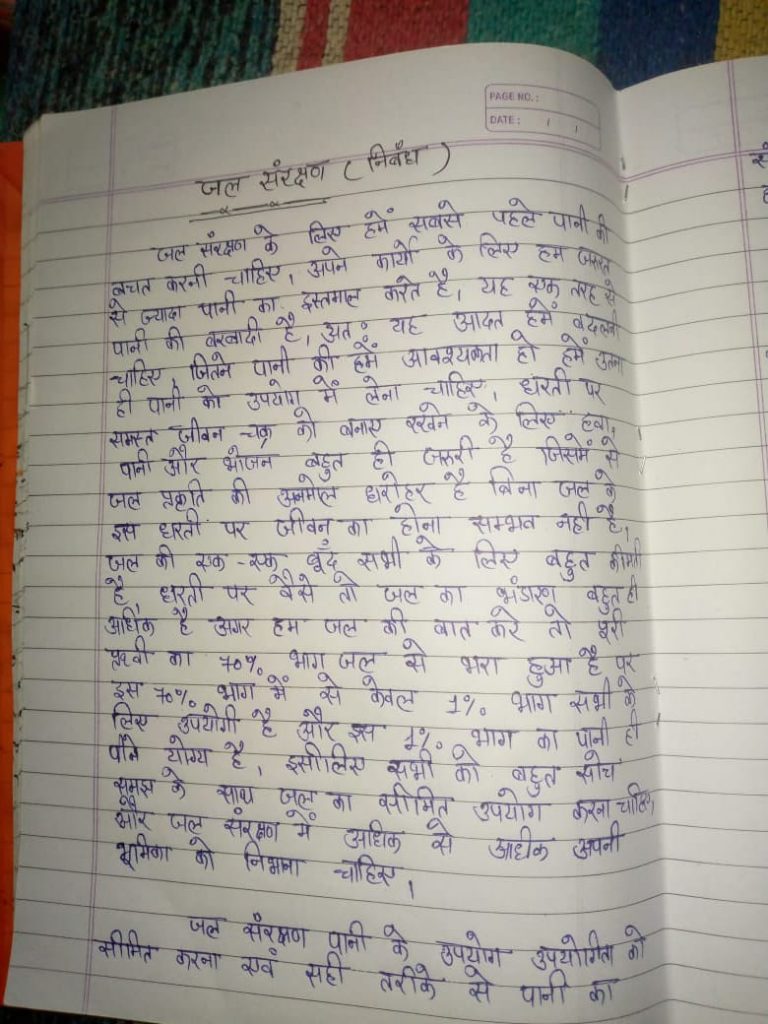 PAGE NO.:
DATE: / /
जल संरक्षण ( निबंध )
जल संरक्षण के लिए हमें सबसे पहले पानी की
बचत करनी चाहिए, अपने कार्यो के लिए हम जरूरत
से ज्यादा पानी का इस्तमाल करते है, यह एक तरह से
पानी की बरबादी है, अतः यह आदत हमें बदलनी
चाहिए, जितने पानी की हमें आवश्यकता हो हमें उतना
ही पानी को उपयोग में लेना चाहिए, धरती पर
समस्त जीवन चक्र को बनाए रखने के लिए हवा,
पानी और भोजन बहुत ही जरुरी है जिसमें से
जल प्रकृति की अनमोल धरोहर है बिना जल के
इस धरती पर जीवन का होना सम्भव नही है,
जल की एक-एक बूँद सभी के लिए बहुत कीमती
है धरती पर वैसे तो जल का भंडारण बहुत ही
अधिक है अगर हम जल की बात करे तो पूरी
पृथ्वी का 70% भाग जल से भरा हुआ है पर
इस 70% भाग में से केवल 1% भाग सभी के
लिए उपयोगी है और इस 1% भाग का पानी ही
पीने योग्य है, इसीलिए सभी को बहुत सोच
समझ के साथ जल का सीमित उपयोग करना चाहिए,
और जल संरक्षण में अधिक से अधिक अपनी
भूमिका को निभाना चाहिए,
जल संरक्षण पानी के उपयोग उपयोगिता को
सीमित करना एवं सही तरीके से पानी का